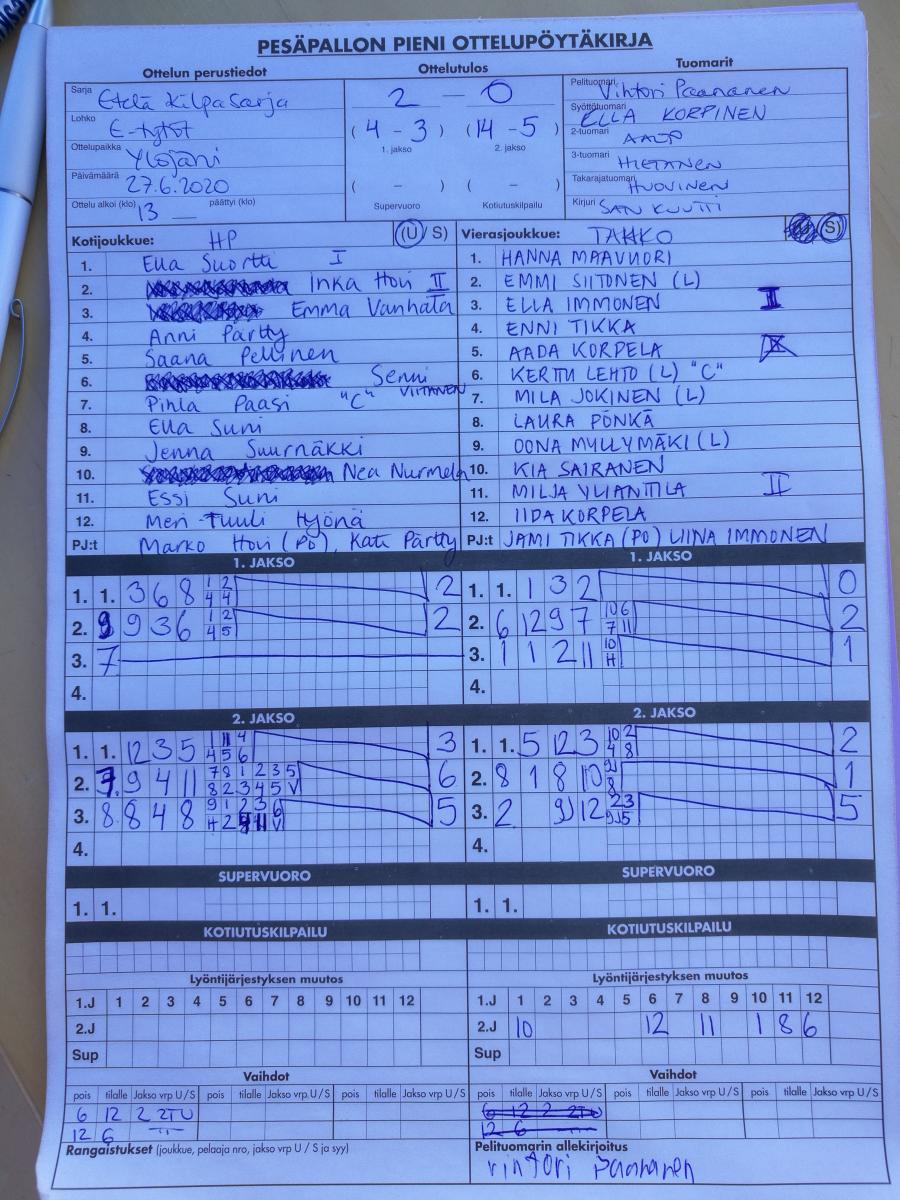 PESÄPALLON PIENI OTTELUPÖYTÄKIRJA
Ottelun perustiedot
Ottelutulos
Tuomarit
Sarja Etelä Kilpasarja
Lohko E-tytöt
Ottelupaikka Ylöjärvi
Päivämäärä 27.6.2020
Ottelu alkoi (klo) 13 päättyi (klo)
2 – 0
( 4 - 3 ) ( 14 - 5 )
1. jakso 2. jakso
( – ) ( – )
Supervuoro Kotiutuskilpailu
Pelituomari Vihtori Paananen
Syöttötuomari ELLA KORPINEN
2-tuomari AAOP
3-tuomari HIETANEN
Takarajatuomari HUOVINEN
Kirjuri SAN KUUTTI
Kotijoukkue: HP (U/ S)
1. Ella Suortti I
2. Inka Hovi II
3. Emma Vanhala
4. Anni Pärtty
5. Saana Pellinen
6. Senni Viitanen
7. Pihla Paasi "C"
8. Ella Suni
9. Jenna Suurnäkki
10. Nea Nurmela
11. Essi Suni
12. Meri-Tuuli Hyönä
PJ:t Marko Hovi (PO), Kati Pärtty
Vierasjoukkue: TAHKO S)
1. HANNA MAAVUORI
2. EMMI SIITONEN (L)
3. ELLA IMMONEN I
4. ENNI TIKKA
5. AADA KORPELA
6. KERTTU LEHTO (L) "C"
7. MILA JOKINEN (L)
8. LAURA PÖNKÄ
9. OONA MYLLYMÄKI (L)
10. KIA SAIRANEN
11. MILJA YLIANTTILA II
12. IIDA KORPELA
PJ:t JAMI TIKKA (PO) LIINA IMMONEN
1. JAKSO
1. 1. 3 6 8 1 2 2
4 4
2. 9 9 3 6 1 2 2
4 5
3. 7
4.
1. JAKSO
1. 1. 1 3 2 0
2. 6 12 9 7 10 6 2
7 11
3. 1 1 2 11 10 1
H
4.
2. JAKSO
1. 1. 12 3 5 1 11 4 3
4 5 6
2. 7. 9 4 11 7 8 1 2 3 5 6
8 2 3 4 5 V
3. 8. 8 4 8 9 1 2 3 6 5
H 2 11 V
4.
2. JAKSO
1. 1. 5 12 3 10 2 2
4 8
2. 8 1 8 10 9 1
8
3. 2 9 12 2 3 5
9 5
4.
SUPERVUORO
1. 1.
SUPERVUORO
1. 1.
KOTIUTUSKILPAILU
KOTIUTUSKILPAILU
Lyöntijärjestyksen muutos
1.J 1 2 3 4 5 6 7 8 9 10 11 12
2.J
Sup
Lyöntijärjestyksen muutos
1.J 1 2 3 4 5 6 7 8 9 10 11 12
2.J 10 12 11 1 8 6
Sup
Vaihdot
pois tilalle Jakso vrp U/S pois tilalle Jakso vrp U/S pois tilalle Jakso vrp U/S
6 12 2 2T U
12 6 –"–
Vaihdot
pois tilalle Jakso vrp U/S pois tilalle Jakso vrp U/S pois tilalle Jakso vrp U/S
6 12 2 2TU
12 6 –"–
Rangaistukset (joukkue, pelaaja nro, jakso vrp U / S ja syy)
Pelituomarin allekirjoitus
Vihtori Paananen